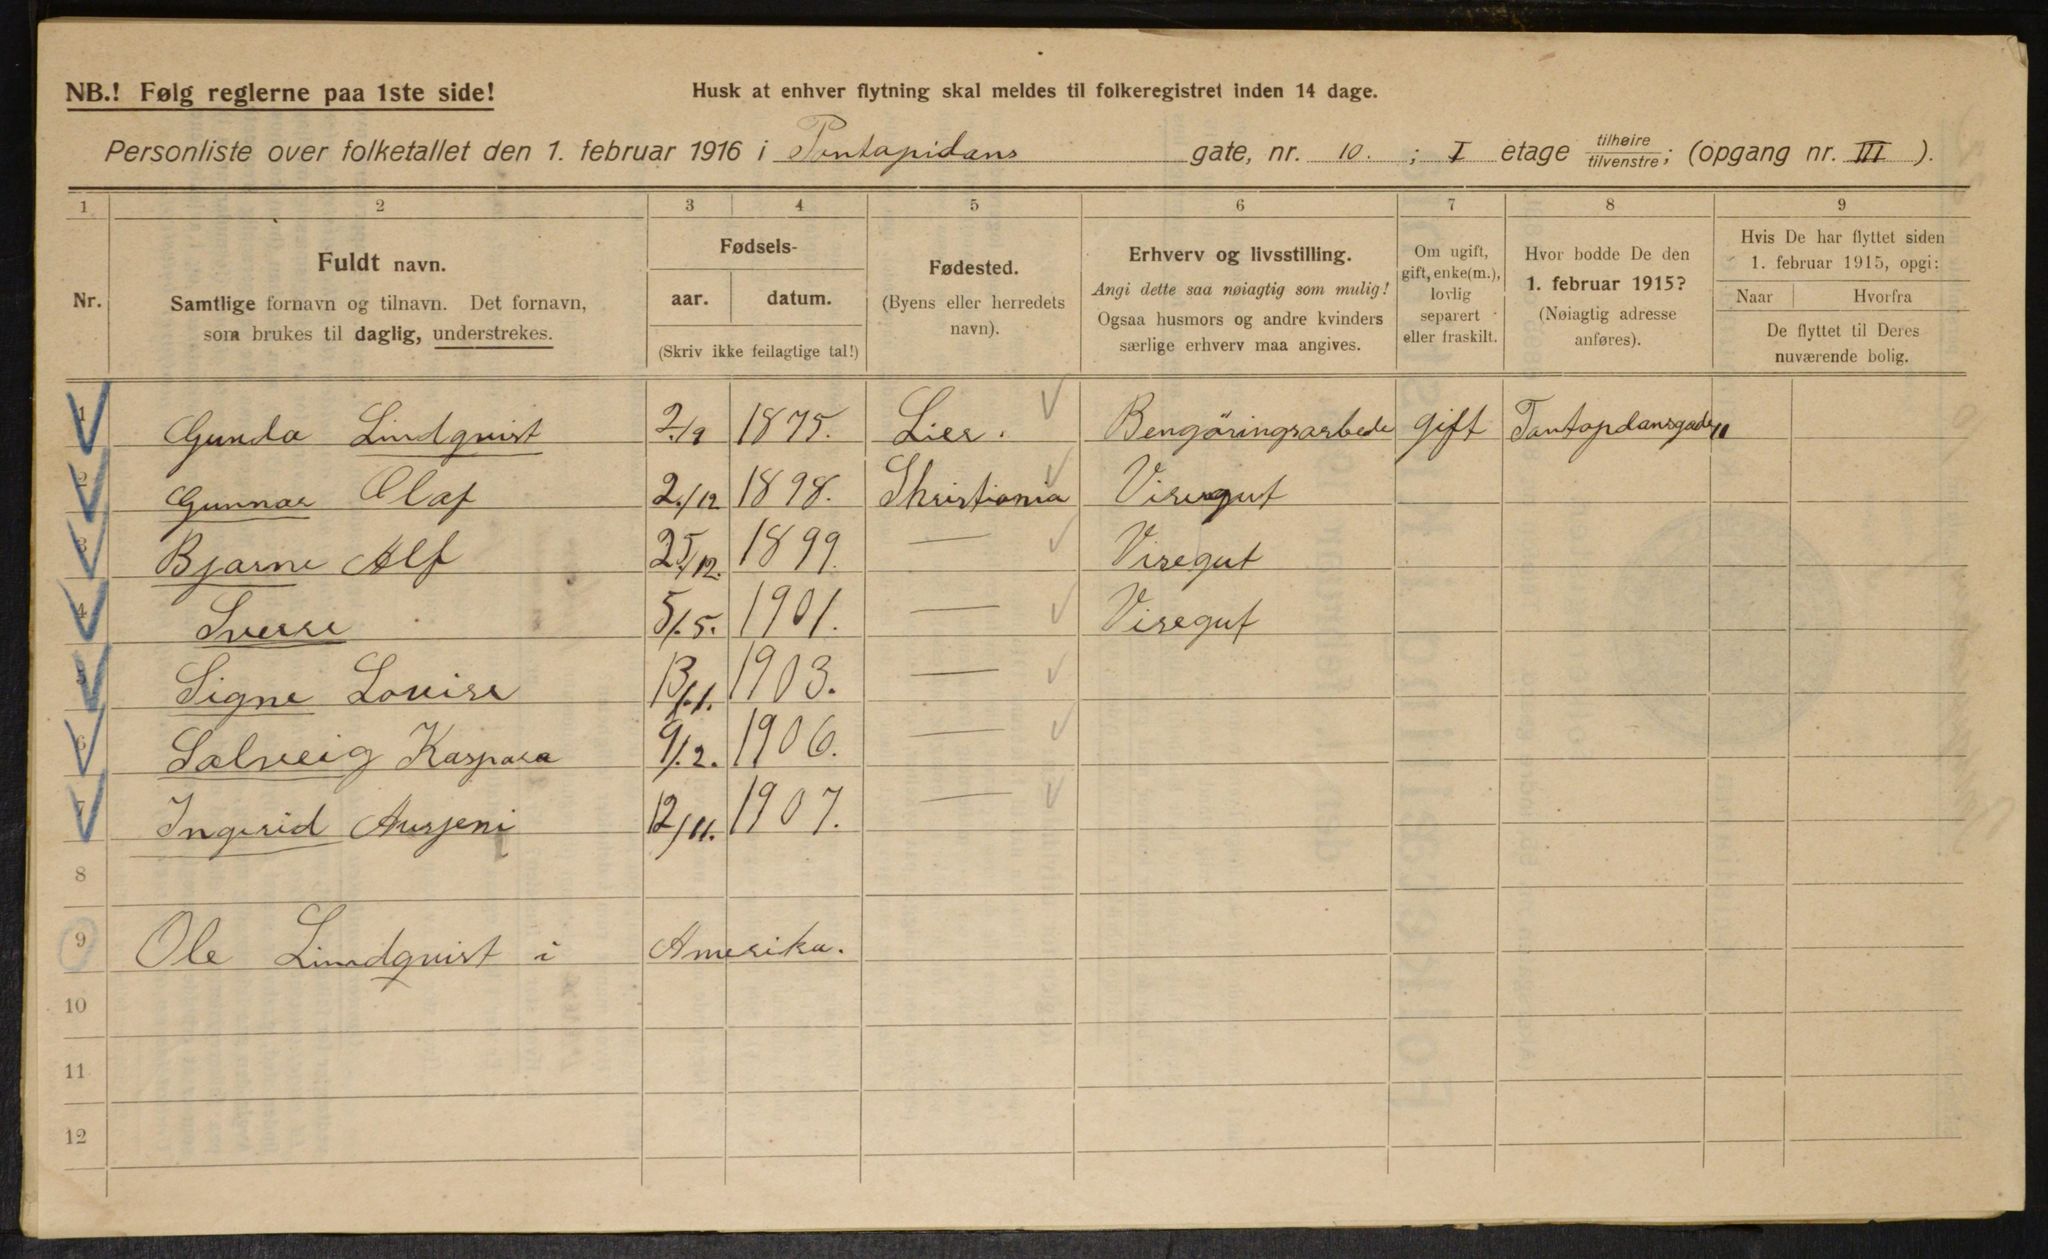 NB.! Følg reglerne paa 1ste side!
Husk at enhver flytning skal meldes til folkeregistret inden 14 dage.
Personliste over folketallet den 1. februar 1916 i Pontopidans gate, nr. 10. ; I etage tilhøire/tilvenstre; (opgang nr. III ).
1 2 3 4 5 6 7 8 9
Nr.
Fuldt navn.
Samtlige fornavn og tilnavn. Det fornavn,
som brukes til daglig, understrekes.
Fødsels-
aar. datum.
(Skriv ikke feilagtige tal!)
Fødested.
(Byens eller herredets
navn).
Erhverv og livsstilling.
Angi dette saa nøiagtig som mulig!
Ogsaa husmors og andre kvinders
særlige erhverv maa angives.
Om ugift,
gift, enke(m.),
lovlig
separert
eller fraskilt.
Hvor bodde De den
1. februar 1915?
(Nøiagtig adresse
anføres).
Hvis De har flyttet siden
1. februar 1915, opgi:
Naar Hvorfra
De flyttet til Deres
nuværende bolig.
1 Gunda Lindqvist 2/9 1875. Lier. Bengöringsarbede gift Tontopdansgade 11
2 Gunnar Olaf 2./12 1898. Khristiania Visergut
3 Bjarne Alf 25/12. 1899. — Visegut
4 Sverre 5/.5. 1901. — Visegut
5 Signe Lovise 13/.1. 1903. —
6 Solveig Kaspara 9/.2. 1906. —
7 Ingerid 12/11. 1907. —
8
9 Ole Lindqvist i Amerika.
10
11
12